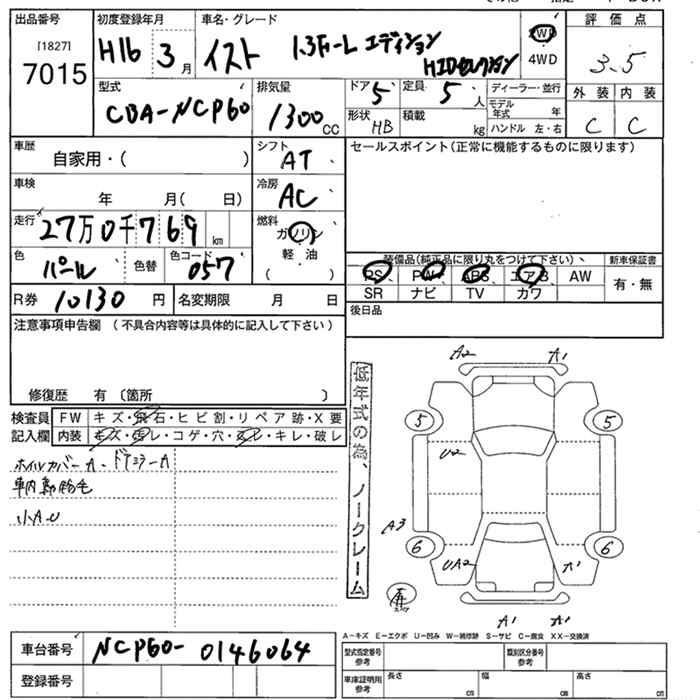 出品番号
[1827]
7015
初度登録年月
H16 3月
車名・グレード
イスト 1.3F-L エディション
HIDセレクション
4WD
評価点
3.5
型式
CBA-NCP60
排気量
1300 CC
ドア 5
定員 5 人
形状 HB
積載 kg
ディーラー・並行
モデル年式 年
ハンドル 左・右
外装 内装
C C
車歴
自家用・( )
シフト
AT
セールスポイント(正常に機能するものに限ります)
車検
年 月( 日)
冷房
AC
走行
27万0千769 km
燃料
ガソリン
軽油
( )
色
パール
色替
色コード
057
装備品(純正品に限り丸をつけて下さい)、
新車保証書
PS PW ABS エアB AW
有・無
SR ナビ TV カワ
R券 10130 円
名変期限 月 日
後日品
注意事項申告欄 (不具合内容等は具体的に記入して下さい)
修復歴 有 〔箇所 〕
検査員 FW キズ・飛石・ヒビ割・リペア跡・X要
記入欄 内装 キズ・汚レ・コゲ・穴・スレ・キレ・破レ
ホイルカバーA・ドアミラーA
小A.U
低年式の為、ノークレーム
A2 A1
5 5
U2
A3
6 6
UA2 A1
A1 A1
A−キズ E−エクボ U−凹み W−補修跡 S−サビ C−腐食 XX−交換済
車台番号
NCP60-0146064
登録番号
型式指定番号
参考
類別区分番号
参考
車庫証明用
参考
長さ cm
幅 cm
高さ cm